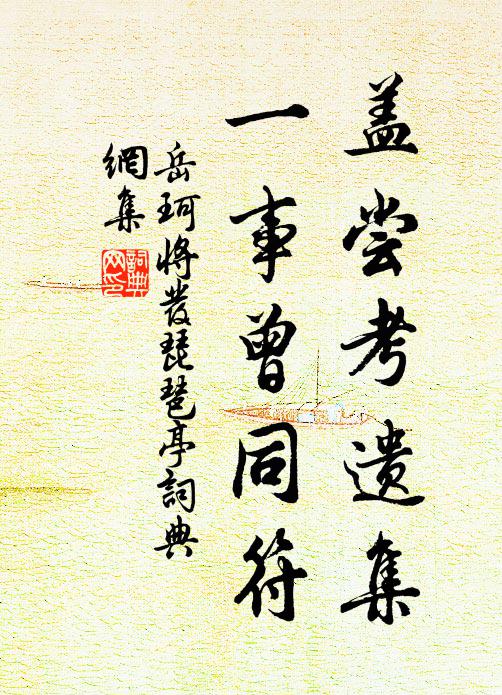 盖尝考遗集
一事曾同符
岳珂將發琵琶亭詞典
網集
詞典
网印